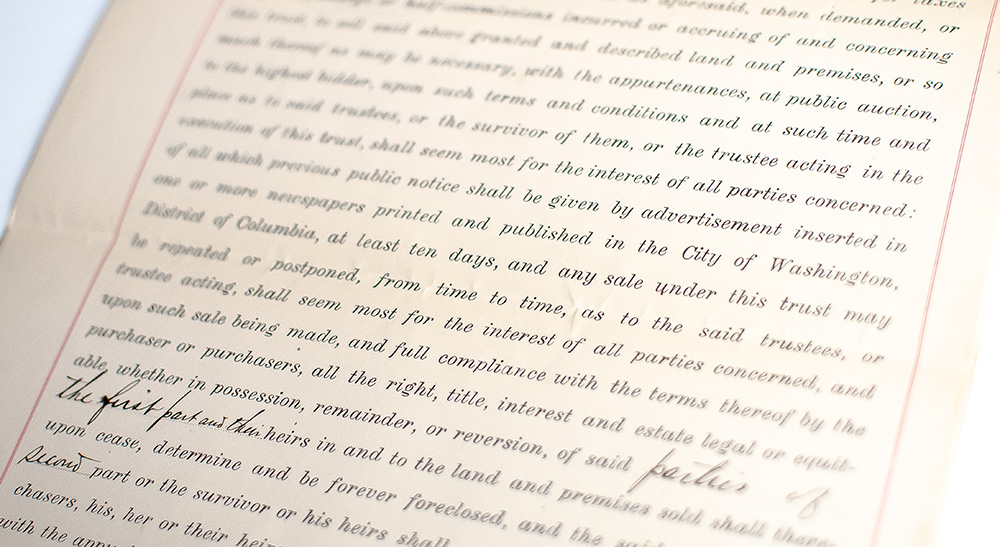 for taxes
as aforesaid, when demanded, or
or half-commissions incurred or accruing of and concerning
this trust, to sell said above granted and described land and premises, or so
much thereof as may be necessary, with the appurtenances, at public auction,
to the highest bidder, upon such terms and conditions and at such time and
place as to said trustees, or the survivor of them, or the trustee acting in the
execution of this trust, shall seem most for the interest of all parties concerned:
of all which previous public notice shall be given by advertisement inserted in
one or more newspapers printed and published in the City of Washington,
District of Columbia, at least ten days, and any sale under this trust may
be repeated or postponed, from time to time, as to the said trustees, or
trustee acting, shall seem most for the interest of all parties concerned, and
upon such sale being made, and full compliance with the terms thereof by the
purchaser or purchasers, all the right, title, interest and estate legal or equit-
able, whether in possession, remainder, or reversion, of said parties of
the first part and their heirs in and to the land and premises sold shall there-
upon cease, determine and be forever foreclosed, and the said
second part or the survivor or his heirs shall
chasers, his, her or their heirs
with the